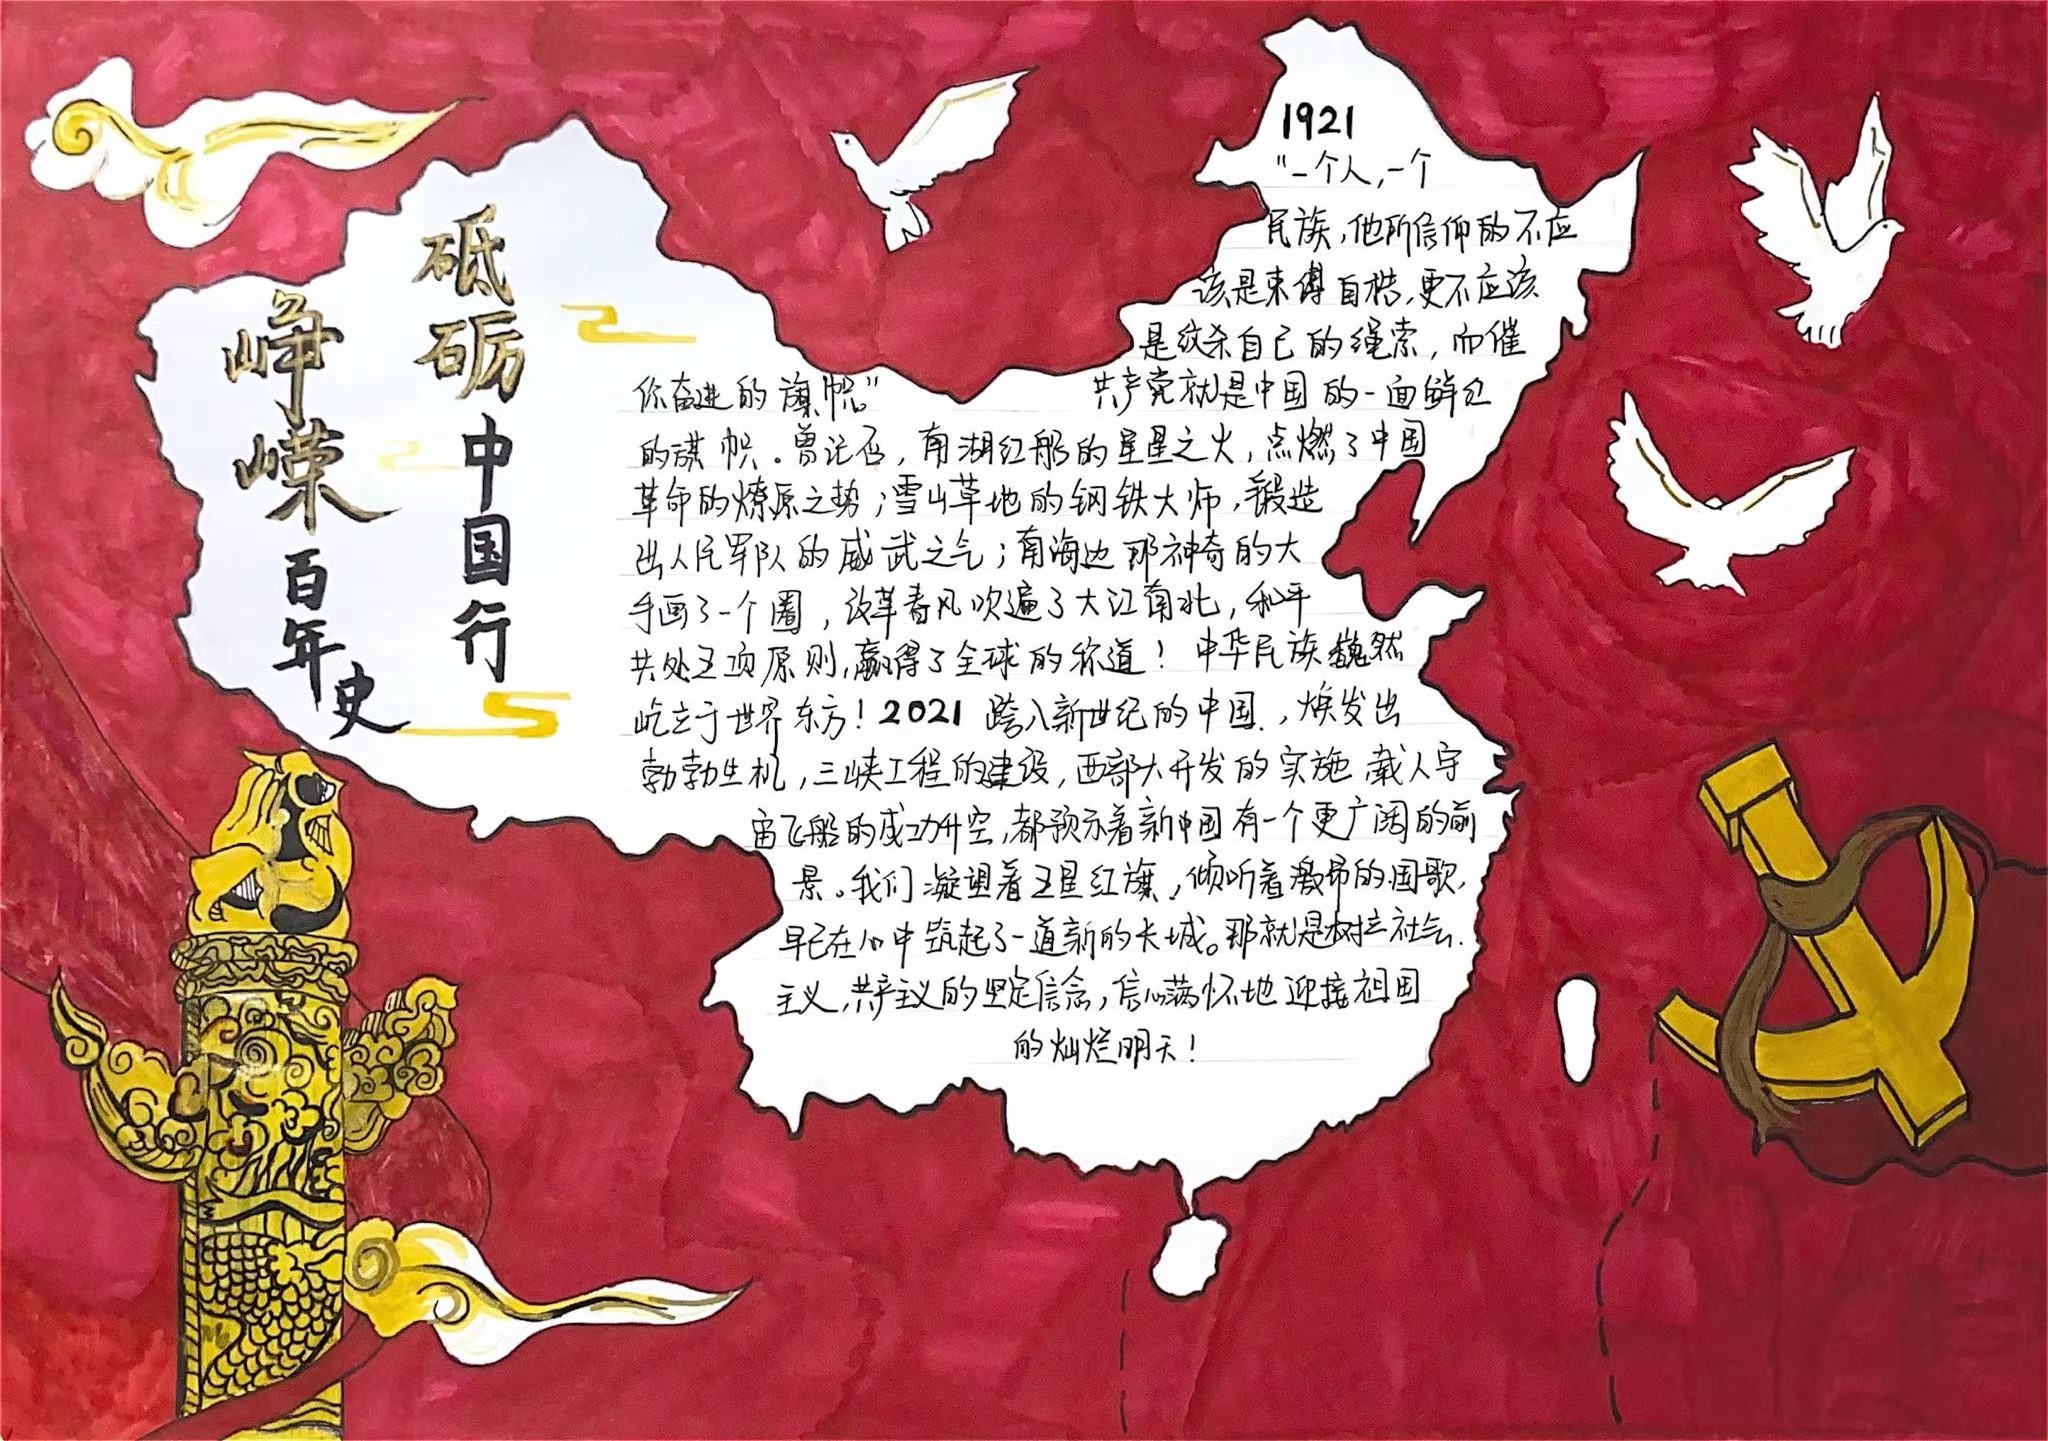 砥砺中国行
峥嵘百年史
1921
"一个人,一个
民族,他所信仰的不应
该是束缚自梏,更不应该
是绞杀自己的绳索,而催
你奋进的旗帜。"
共产党就是中国的一面鲜红
的旗帜。曾记否,南湖红船的星星之火,点燃了中国
革命的燎原之势;雪山草地的钢铁大师,锻造
出人民军队的威武之气;南海边那神奇的大
手画了一个圈,改革春风吹遍了大江南北,和平
共处五项原则,赢得了全球的称道!中华民族巍然
屹立于世界东方!2021 跨入新世纪的中国,焕发出
勃勃生机,三峡工程的建设,西部大开发的实施,载人宇
宙飞船的成功升空,都预示着新中国有一个更广阔的前
景。我们凝望着五星红旗,倾听着激昂的国歌,
早已在心中筑起了一道新的长城。那就是树立社会
主义,共产主义的坚定信念,信心满怀地迎接祖国
的灿烂明天!